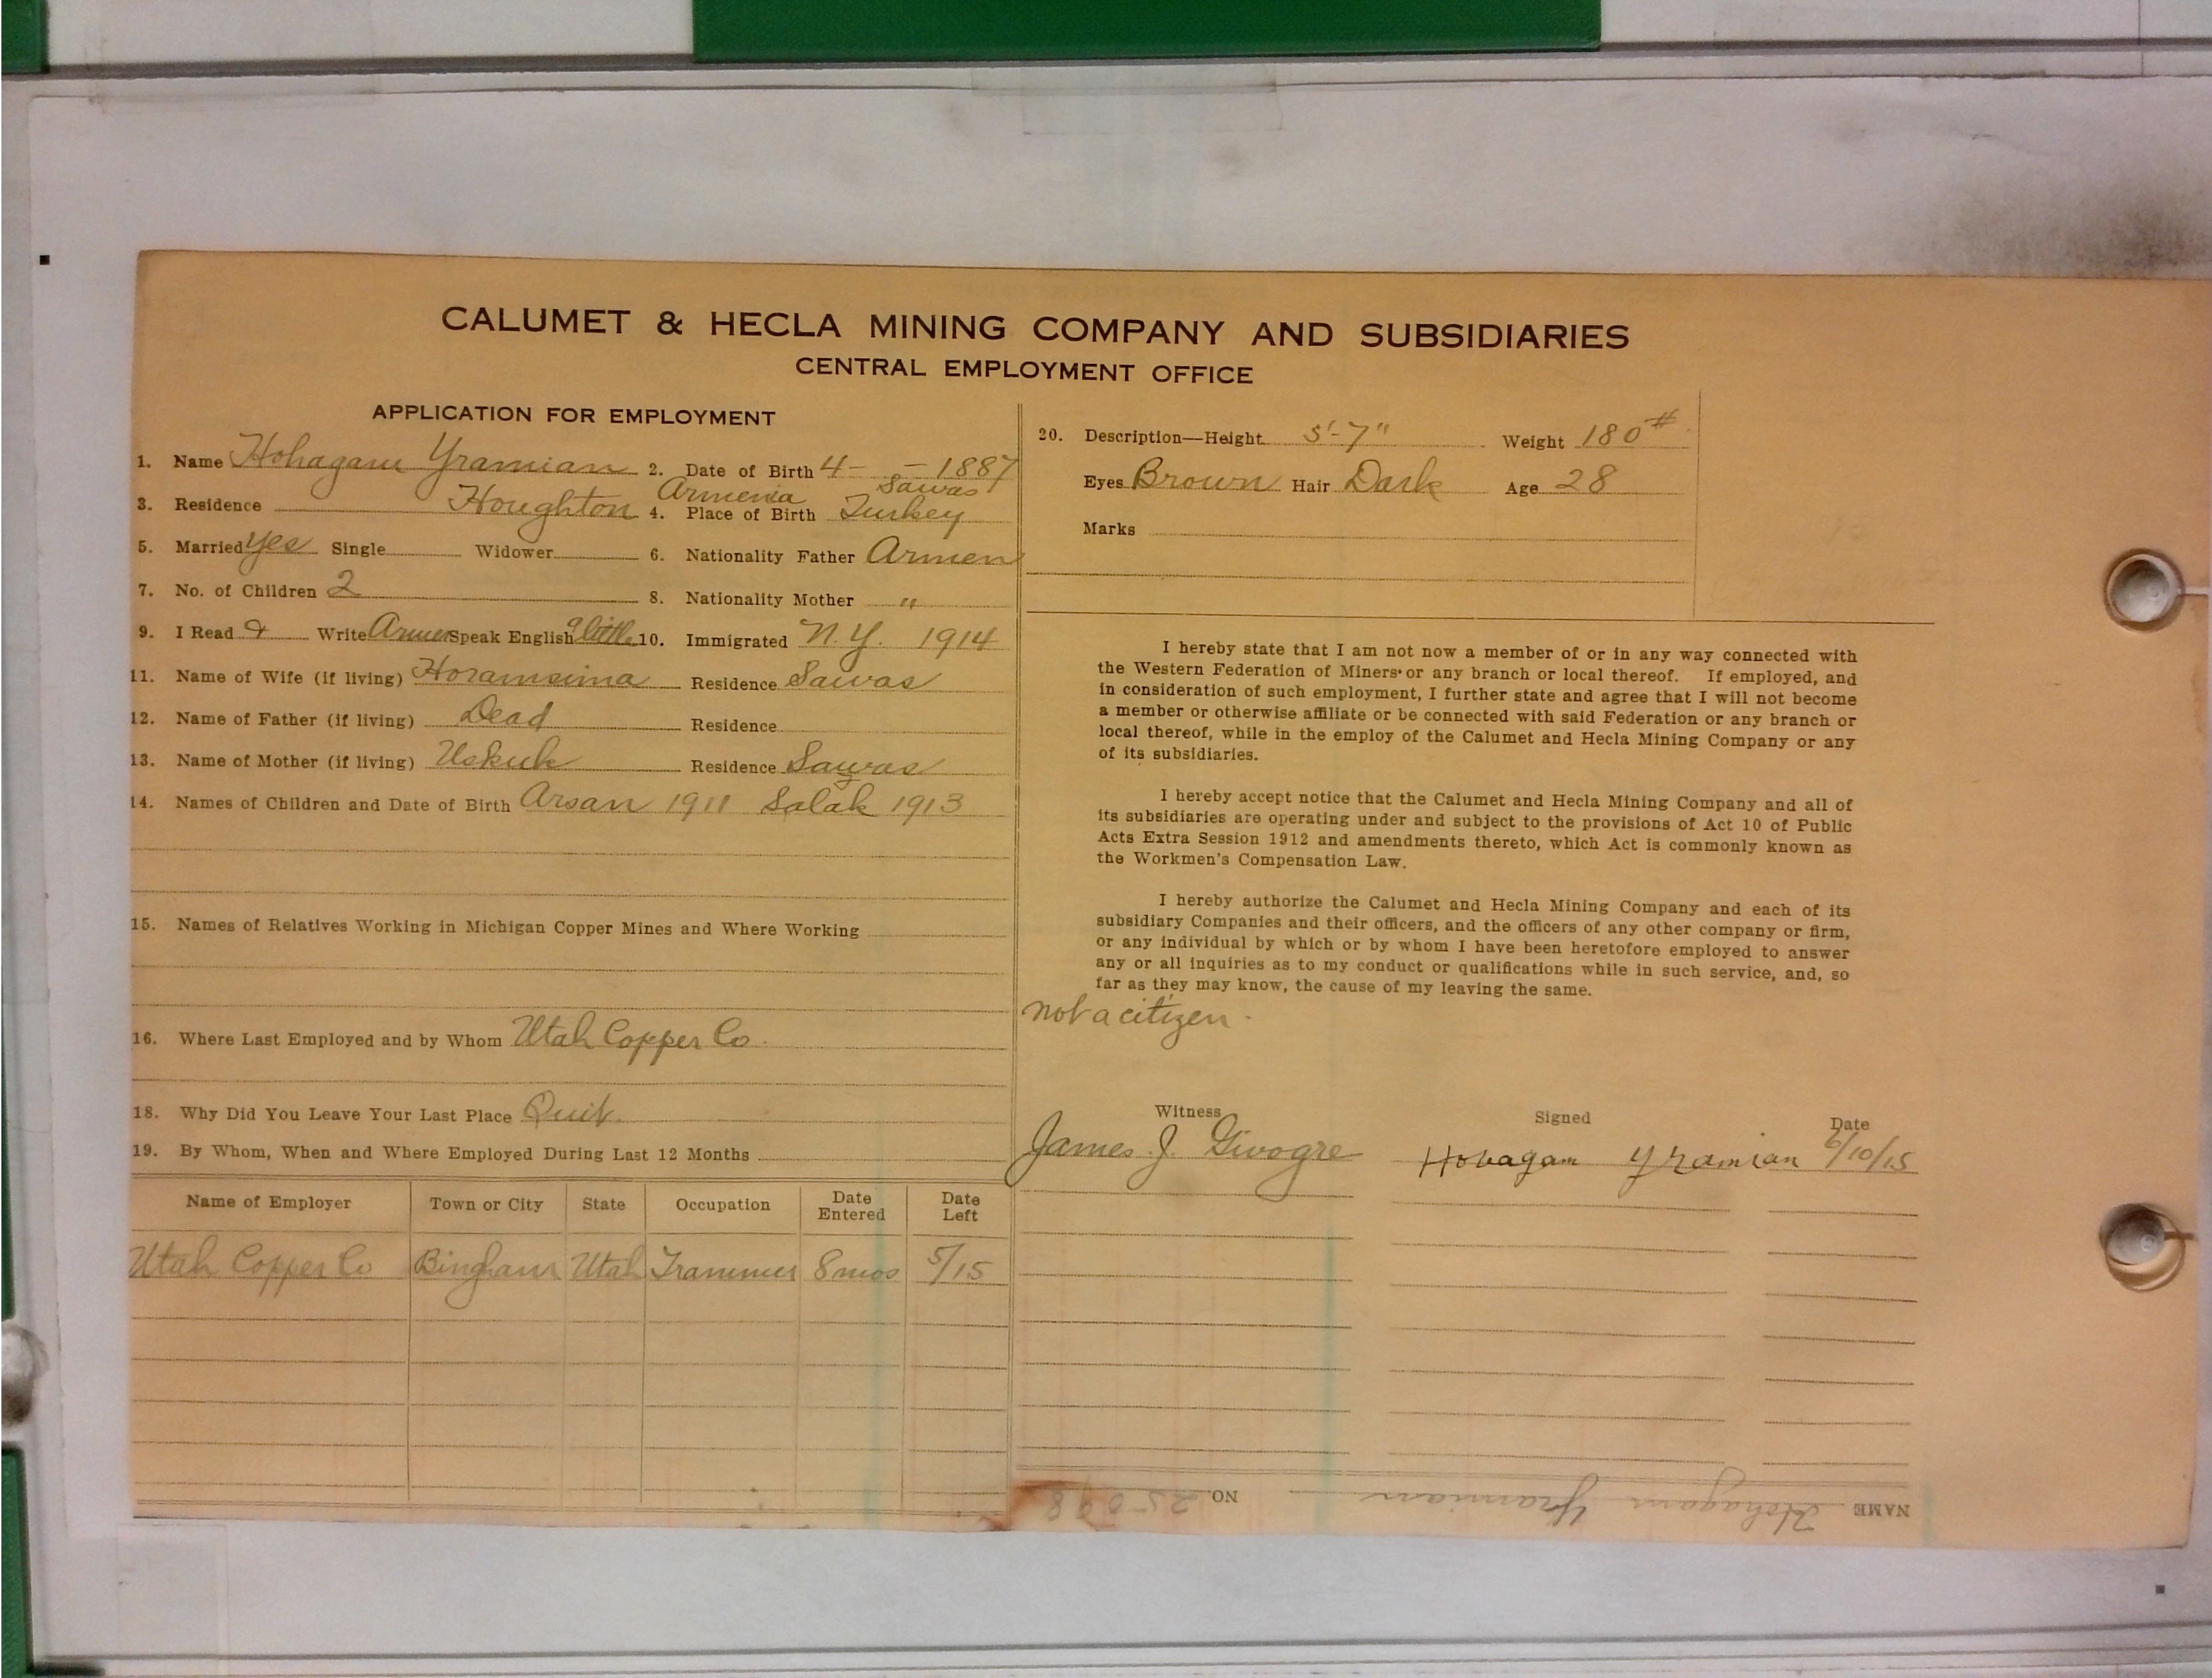 CALUMET & HECLA MINING COMPANY AND SUBSIDIARIES
CENTRAL EMPLOYMENT OFFICE
APPLICATION FOR EMPLOYMENT
1. Name Hohagam Yramian 2. Date of Birth 4- - 1887
3. Residence Houghton 4. Place of Birth Armenia Sawas Turkey
5. Married yes Single Widower 6. Nationality Father Armen
7. No. of Children 2 8. Nationality Mother "
9. I Read & Write Armen Speak English a little 10. Immigrated N.Y. 1914
11. Name of Wife (if living) Horamsima Residence Sawas
12. Name of Father (if living) Dead Residence
13. Name of Mother (if living) Uskuh Residence Sawas
14. Names of Children and Date of Birth Arsan 1911 Salak 1913
15. Names of Relatives Working in Michigan Copper Mines and Where Working
16. Where Last Employed and by Whom Utah Copper Co.
18. Why Did You Leave Your Last Place Quit.
19. By Whom, When and Where Employed During Last 12 Months
Name of Employer Town or City State Occupation Date Entered Date Left
Utah Copper Co Bingham Utah Trammer 8 mos 5/15
20. Description—Height 5'-7" Weight 180#
Eyes Brown Hair Dark Age 28
Marks
I hereby state that I am not now a member of or in any way connected with
the Western Federation of Miners or any branch or local thereof. If employed, and
in consideration of such employment, I further state and agree that I will not become
a member or otherwise affiliate or be connected with said Federation or any branch or
local thereof, while in the employ of the Calumet and Hecla Mining Company or any
of its subsidiaries.
I hereby accept notice that the Calumet and Hecla Mining Company and all of
its subsidiaries are operating under and subject to the provisions of Act 10 of Public
Acts Extra Session 1912 and amendments thereto, which Act is commonly known as
the Workmen's Compensation Law.
I hereby authorize the Calumet and Hecla Mining Company and each of its
subsidiary Companies and their officers, and the officers of any other company or firm,
or any individual by which or by whom I have been heretofore employed to answer
any or all inquiries as to my conduct or qualifications while in such service, and, so
far as they may know, the cause of my leaving the same.
not a citizen.
Witness Signed Date
James J. Givogre Hohagam Yramian 6/10/15
NAME Hohagam Yramian NO. 25098